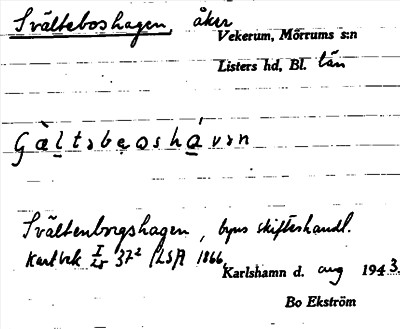 Svälteboshagen, åker
Vekerum, Mörrums s:n
Listers hd, Bl. län
Svältenborgshagen, byns skifteshandl.
37² LSA 1866
Karlshamn d. aug 1943.
Bo Ekström